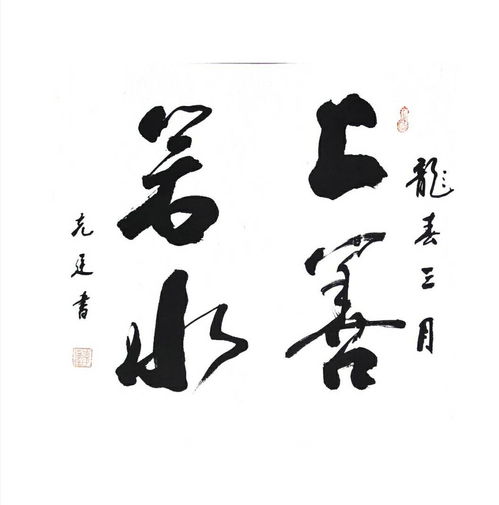 龍春三月
上善
若水
克廷書